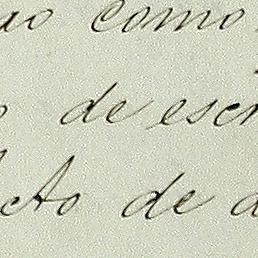 ao como
o de escr
cto de d